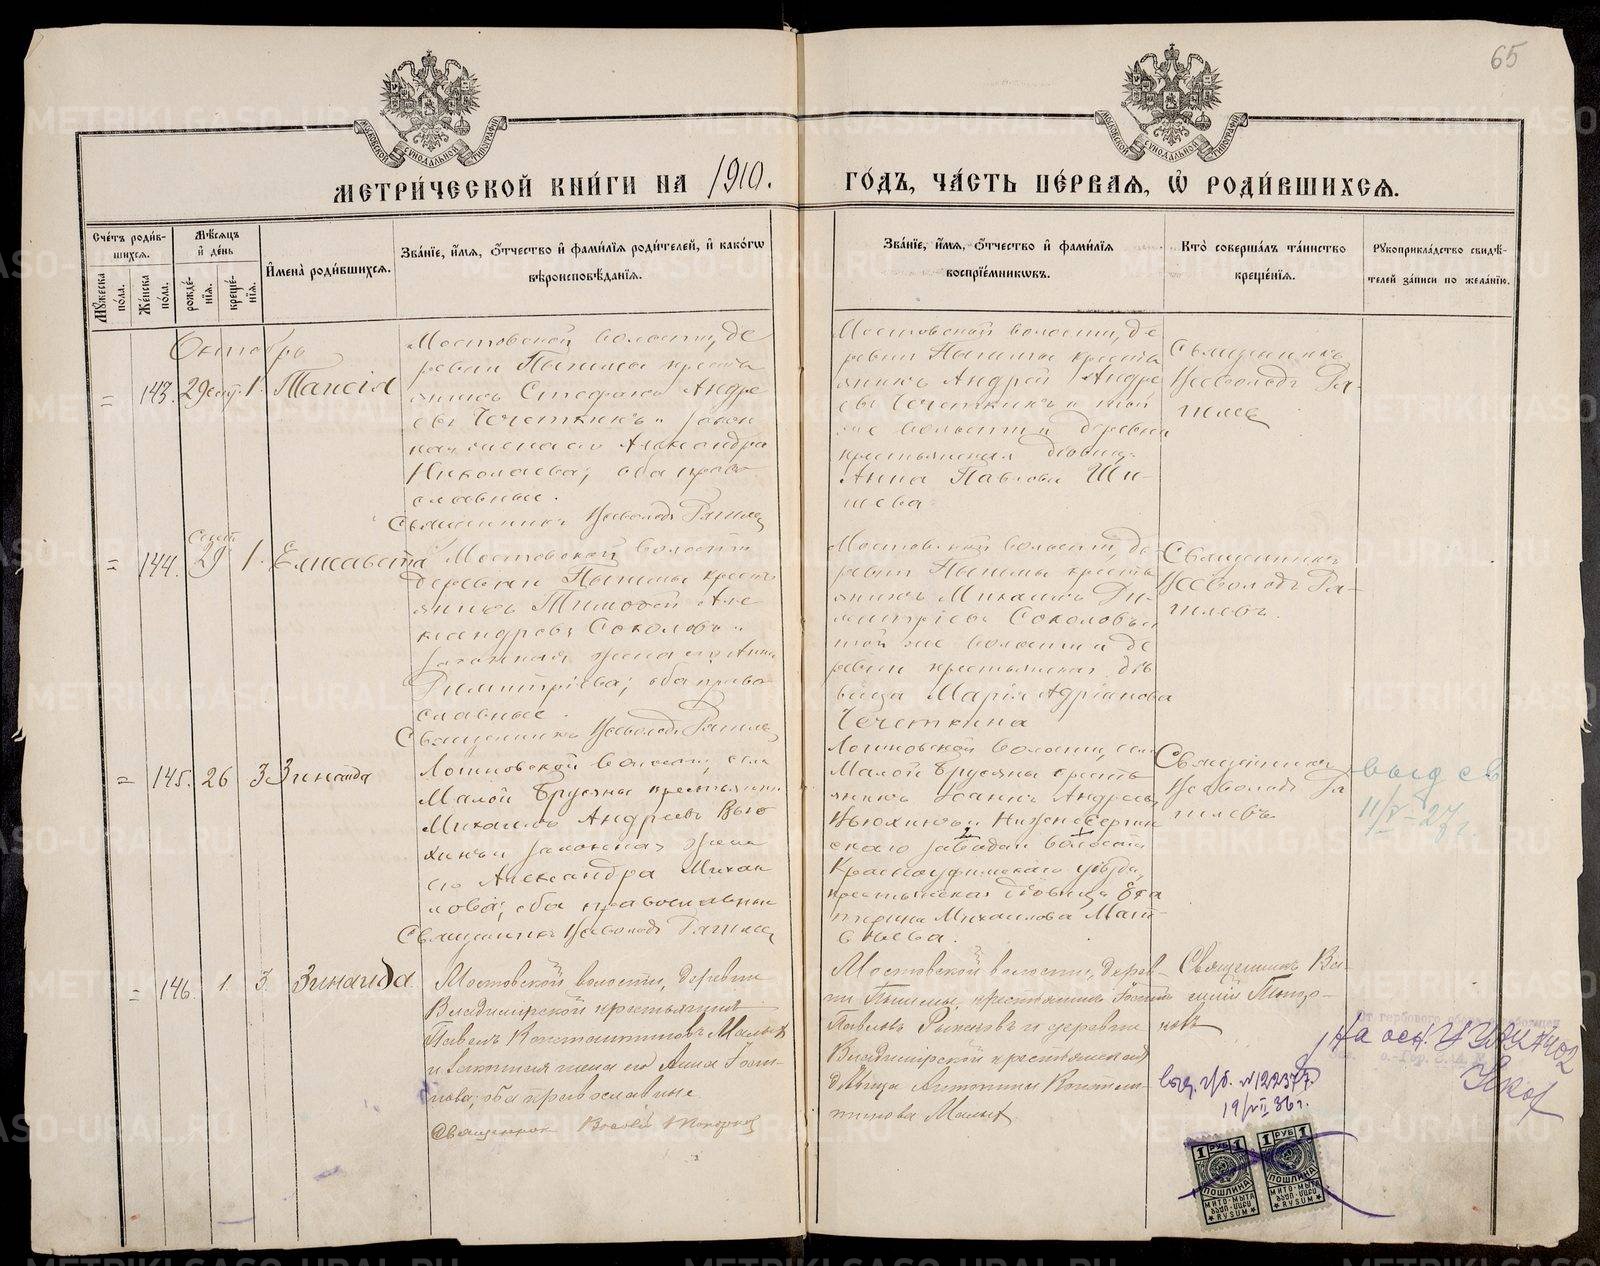 65
МОСКОВСКОЙ СѴНОДАЛЬНОЙ ТИПОГРАФІИ
МОСКОВСКОЙ СѴНОДАЛЬНОЙ ТИПОГРАФІИ
МЕТРИ́ЧЕСКОЙ КНИ́ГИ НА 1910. ГО́ДЪ, ЧА́СТЬ ПЕ́РВАѦ, Ѡ҆ РОДИ́ВШИХСѦ.
Сче́тъ роди́в-
шихсѧ.
Мꙋ́жеска по́ла.
Же́нска по́ла.
Мѣ́сѧцъ
и҆ де́нь
рожде́-
нїѧ.
креще́-
нїѧ.
И҆мена̀ роди́вшихсѧ.
Зва́нїе, и҆́мѧ, ѻ҆́тчество и҆ фами́лїѧ роди́телей, и҆ како́гѡ
вѣроисповѣ́данїѧ.
Зва́нїе, и҆́мѧ, ѻ҆́тчество и҆ фами́лїѧ
воспрїе́мникѡвъ.
Кто̀ соверша́лъ та́инство
креще́нїѧ.
Рꙋкоприкла́дство свидѣ́-
телей за́писи по жела́нїю.
Октябрь
143. 29 сент. 1. Таисія
Мостовской волости, де
ревни Пышмы кресть
янинъ Стефанъ Андре
евъ Чечеткинъ и закон
ная жена его Александра
Николаева; оба право
славные.
Священникъ Всеволодъ
Мостовской волости, де
ревни Пышмы кресть
янинъ Андрей Андре
евъ Чечеткинъ и той
же волости и деревни
крестьянская дѣвица
Анна Павлова Ши-
шева
Священникъ
Всеволодъ
144. Сент. 29 1. Елисавета
Мостовской волости
деревни Пышмы кресть
янинъ Тимофей Але
ксандровъ Соколовъ и
законная жена его Анна
Димитріева; оба право
славные.
Священникъ Всеволодъ
Мостовской волости, де
ревни Пышмы кресть
янинъ Михаилъ Ди
митріевъ Соколовъ и
той же волости и де
ревни крестьянская дѣ
вица Марія Адріанова
Чечеткина
Священникъ
Всеволодъ
145. 26 3 Зинаида
Логиновской волости, села
Малой Брусяны крестьянинъ
Михаилъ Андреевъ Вью
хинъ и законная жена
его Александра Михаи
лова; оба православные
Священникъ Всеволодъ
Логиновской волости, села
Малой Брусяны кресть
янинъ Іоаннъ Андреевъ
Вьюхинъ и Нижнесергин
скаго завода и волости
Красноуфимскаго уѣзда,
крестьянская дѣвица Ека
терина Михаилова Мат-
вѣева.
Священникъ
Всеволодъ
выд св
11/V-27 г.
146. 1. 3. Зинаида
Мостовской волости, деревни
Владимірской крестьянинъ
Павелъ Константиновъ Малыхъ
и законная жена его Анна
оба православные.
Священникъ
Мостовской волости, дерев-
ни Пышмы, крестьянинъ
Павловъ и деревни
Владимірской крестьянская
дѣвица Антонина Констан-
тинова Малыхъ
Священникъ Ва-
силій
На осн.
выд. г/б. № 122377.
19/VII 36 г.
1 РУБ 1
ПОШЛИНА
МИТО-МЫТА
RYSUM
1 РУБ 1
ПОШЛИНА
МИТО-МЫТА
RYSUM
METRIKI.GASO-URAL.RU